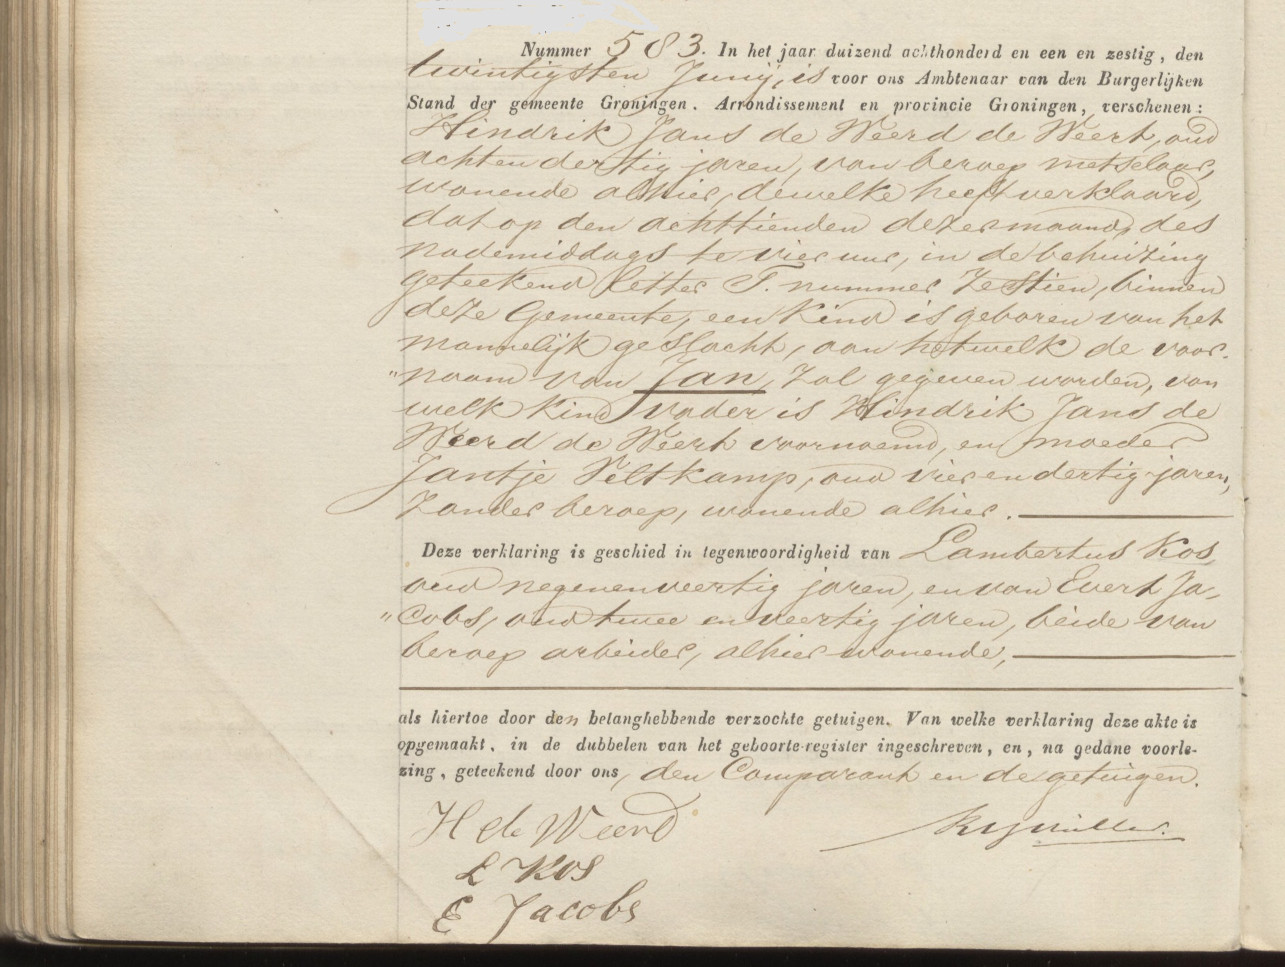 Nummer 583. In het jaar duizend achthonderd en een en zestig, den
twintigsten Junij, is voor ons Ambtenaar van den Burgerlijken
Stand der gemeente Groningen. Arrondissement en provincie Groningen, verschenen:
Hindrik Jans de Weerd de Weert, oud
achtendertig jaren, van beroep metselaar,
wonende alhier, dewelke heeft verklaard,
dat op den achttienden dezer maand, des
nademiddags te vier uur, in de behuizing
geteekend letter T. nummer zestien, binnen
deze Gemeente, een kind is geboren van het
mannelijk geslacht, aan hetwelk de voor-
"naam van Jan, zal gegeven worden, van
welk kind vader is Hindrik Jans de
Weerd de Weert voornoemd, en moeder
Jantje Veltkamp, oud vierendertig jaren,
zonder beroep, wonende alhier.
Deze verklaring is geschied in tegenwoordigheid van Lambertus Kos,
oud negenenveertig jaren, en van Evert Ja-
"cobs, oud twee en veertig jaren, beide van
beroep arbeider, alhier wonende,
als hiertoe door den belanghebbende verzochte getuigen. Van welke verklaring deze akte is
opgemaakt, in de dubbelen van het geboorte-register ingeschreven, en, na gedane voorle-
zing, geteekend door ons, den Comparant en de getuigen.
H de Weerd
L Kos
E Jacobs